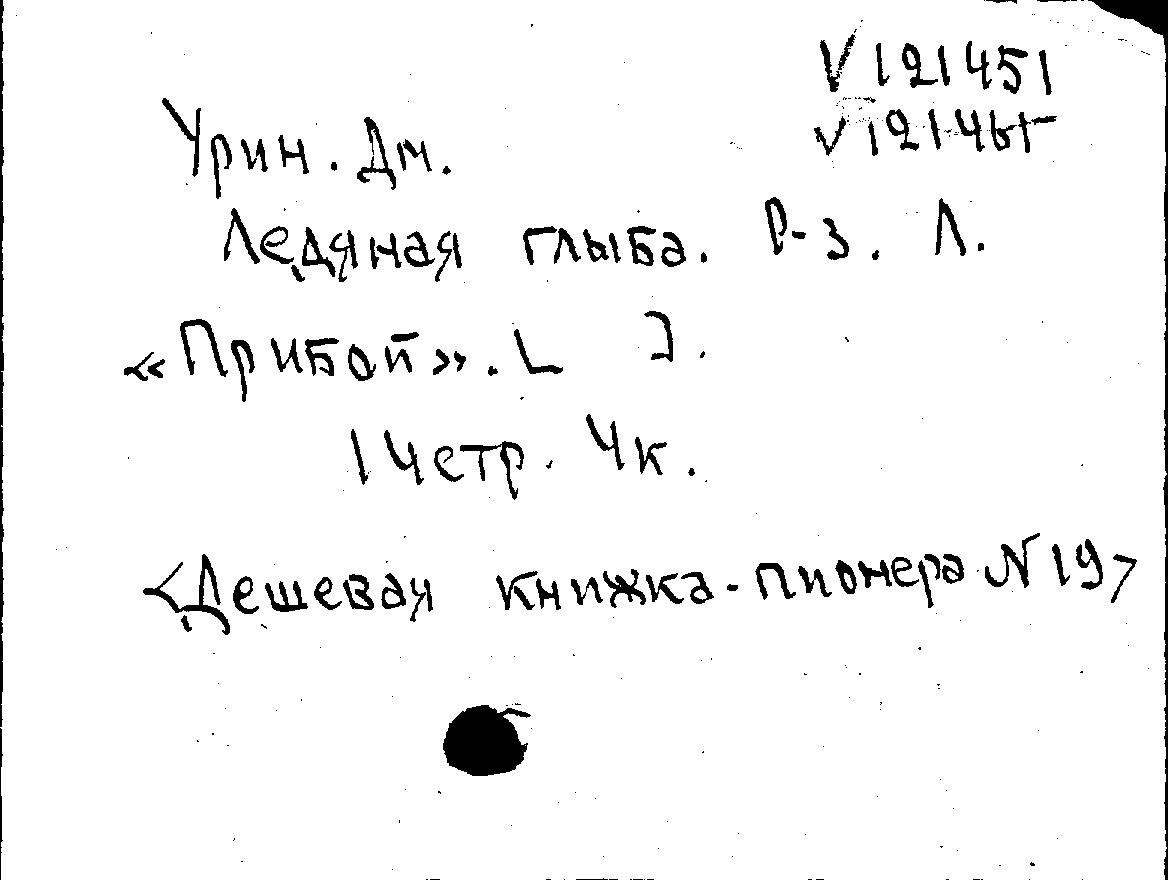 V 121451
V 121465
Урин. Дм.
Ледяная глыба. Р-з. Л.
«Прибой». [ ].
14 стр. 4к.
<Дешевая книжка-пионера N 19>